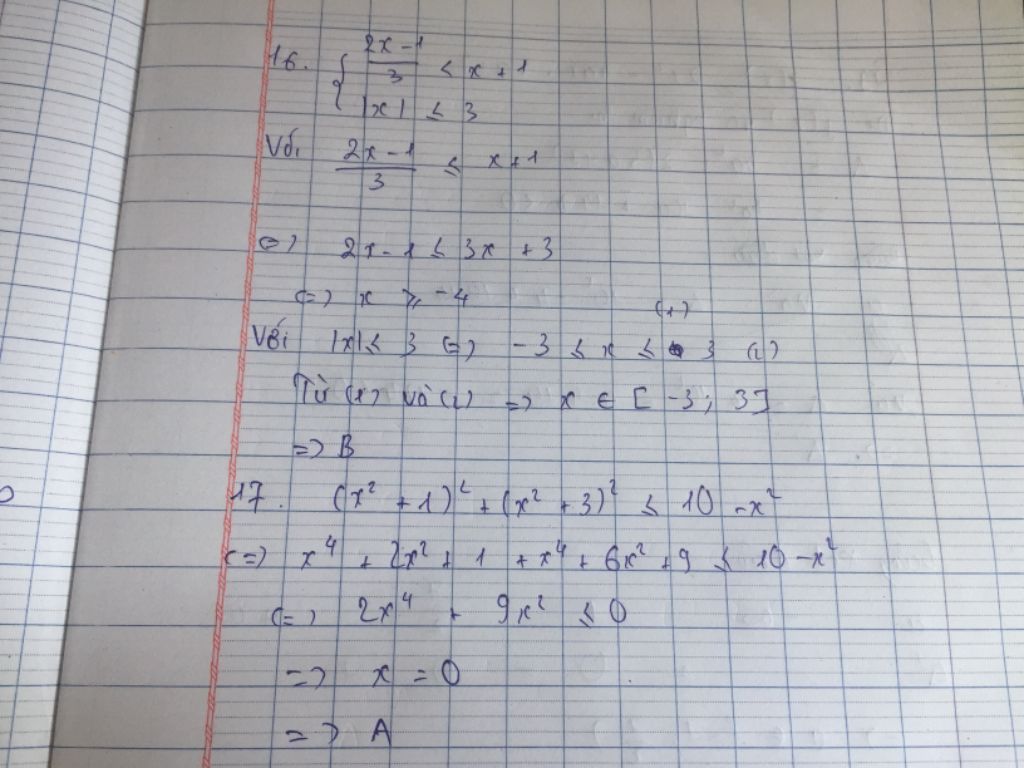 16. { (2x-1)/3 ≤ x + 1
|x| ≤ 3
Với (2x-1)/3 ≤ x+1
<=> 2x-1 ≤ 3x + 3
<=> x ≥ -4 (1)
Với |x| ≤ 3 <=> -3 ≤ x ≤ 3 (2)
Từ (1) và (2) => x ∈ [-3; 3]
=> B
17. (x² + 1)² + (x² + 3)² ≤ 10 - x²
<=> x⁴ + 2x² + 1 + x⁴ + 6x² + 9 ≤ 10 - x²
<=> 2x⁴ + 9x² ≤ 0
=> x = 0
=> A